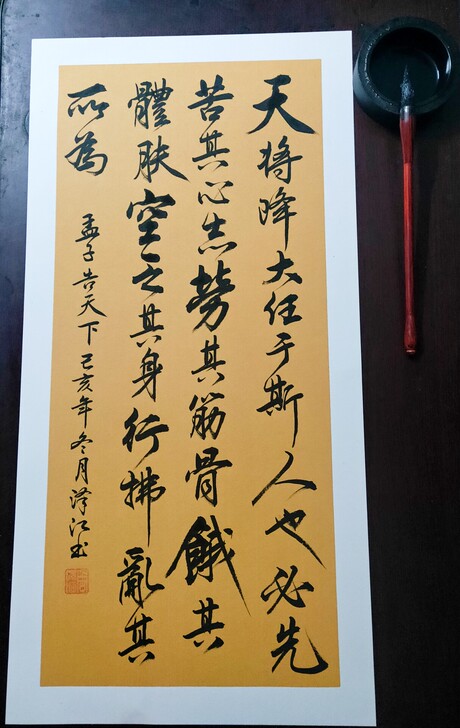 天将降大任于斯人也必先
苦其心志勞其筋骨餓其
體肤空乏其身行拂亂其
所為
孟子告天下 己亥年冬月泽江书